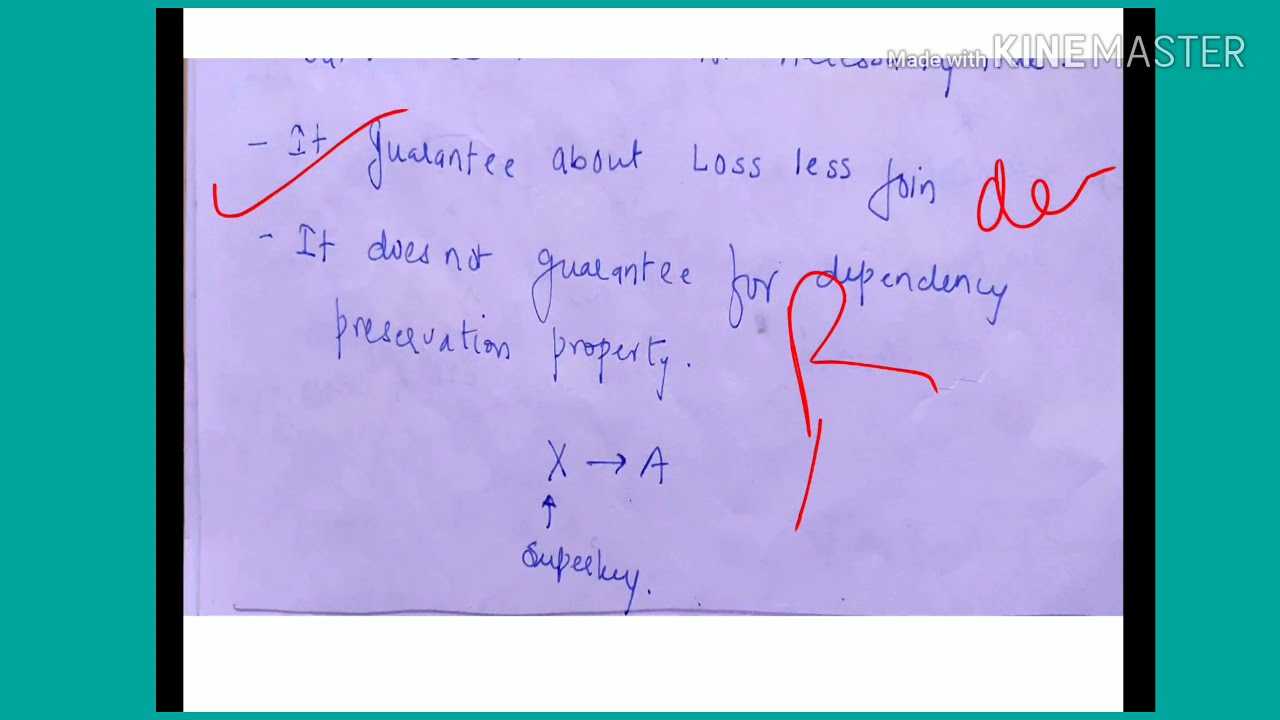 Made with KINEMASTER
- It guarantee about Loss less Join de
- It does not guarantee for dependency
preservation property.
X → A
↑
Superkey.